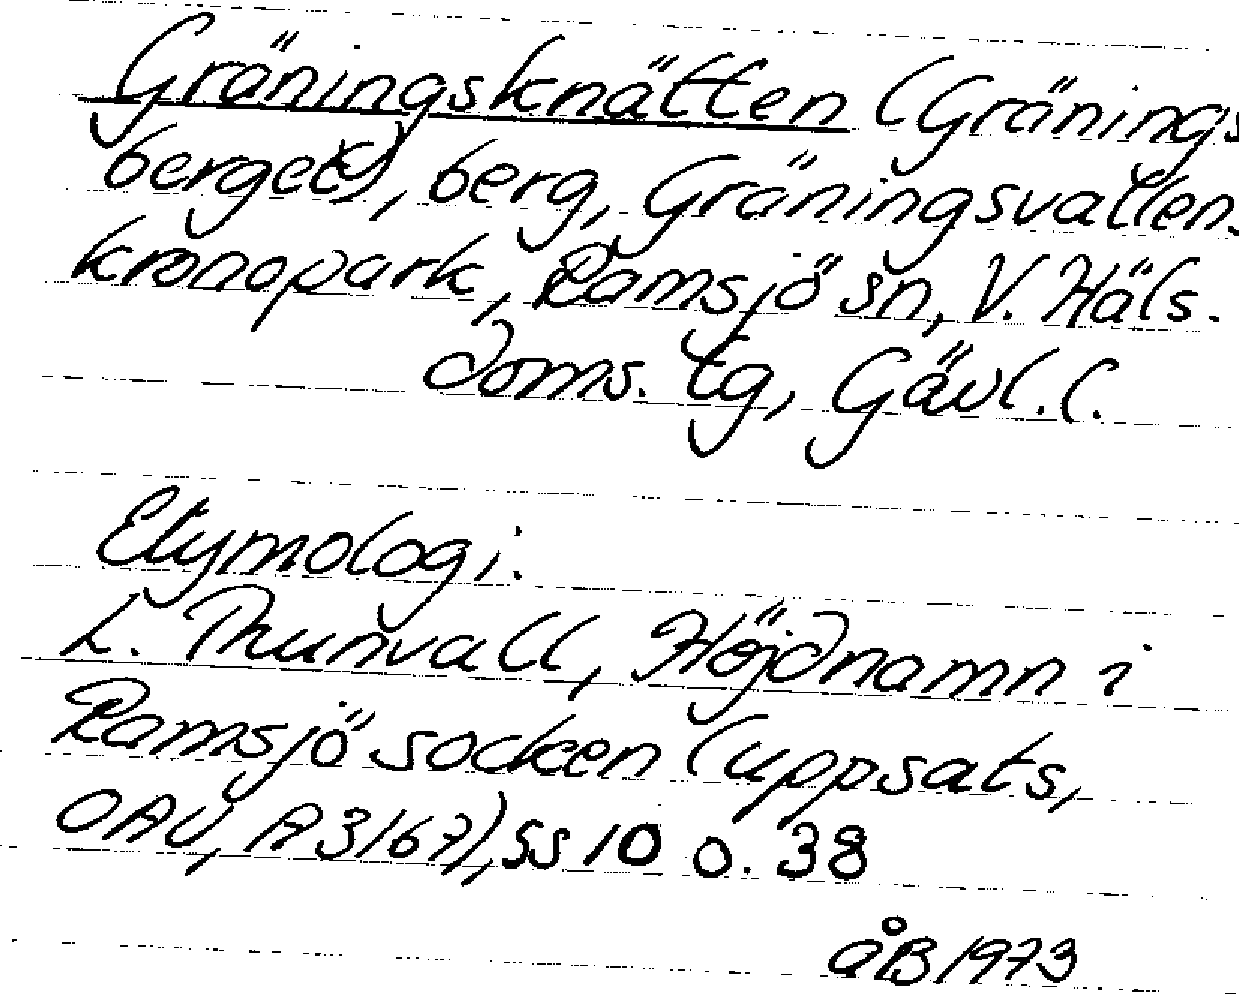 Gräningsknätten (Gränings
berget), berg, Gräningsvallens
kronopark, Ramsjö sn, V. Häls.
doms. tg, Gävl. l.
Etymologi:
L. Thunvall, Höjdnamn i
Ramsjö socken (uppsats,
OAU, A 3167), ss 10 o. 38
åB 1973